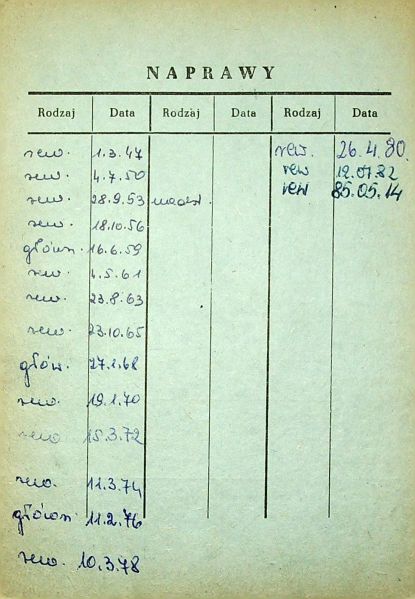 NAPRAWY
Rodzaj Data Rodzaj Data Rodzaj Data
rew. 1.3.47 rew. 26.4.80.
rew. 4.7.50 rew 12.07.82
rew. 28.9.53 rew 85.05.14
rew. 18.10.56
główn. 16.6.59
rew 4.5.61
rew. 23.8.63
rew. 23.10.65
głów. 27.1.68
rew. 19.1.70
rew 15.3.72
rew. 11.3.74
główn 11.2.76
rew. 10.3.78